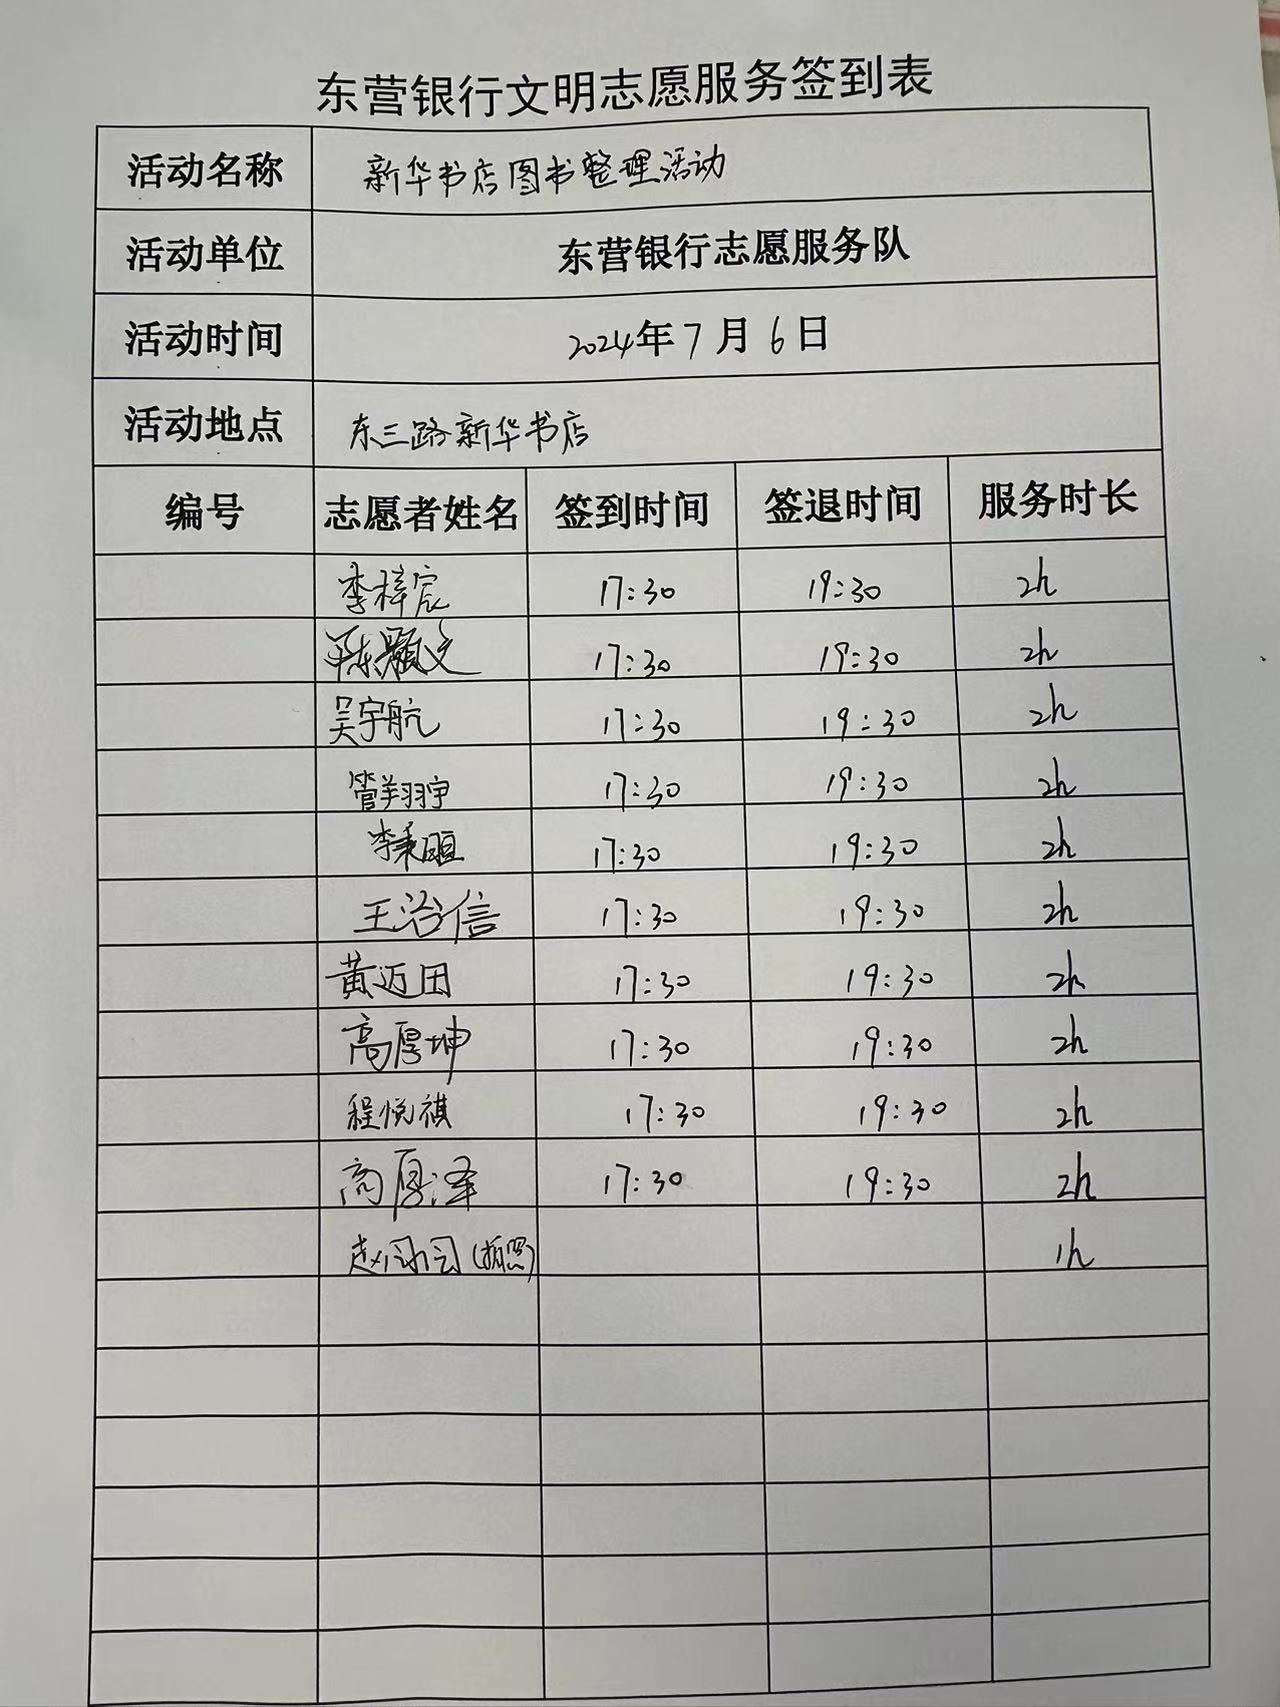 东营银行文明志愿服务签到表
活动名称 新华书店图书整理活动
活动单位 东营银行志愿服务队
活动时间 2024年7月6日
活动地点 东三路新华书店
编号 志愿者姓名 签到时间 签退时间 服务时长
李梓宸 17:30 19:30 2h
陈颢文 17:30 19:30 2h
吴宇航 17:30 19:30 2h
管翔宇 17:30 19:30 2h
李秉暄 17:30 19:30 2h
王治信 17:30 19:30 2h
黄迈田 17:30 19:30 2h
高厚坤 17:30 19:30 2h
程悦祺 17:30 19:30 2h
高厚泽 17:30 19:30 2h
赵 (拍照) 1h